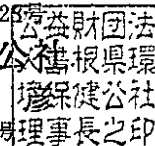 28号
公社
号
公益財団法
人島根県環
境保健公社
理事長之印